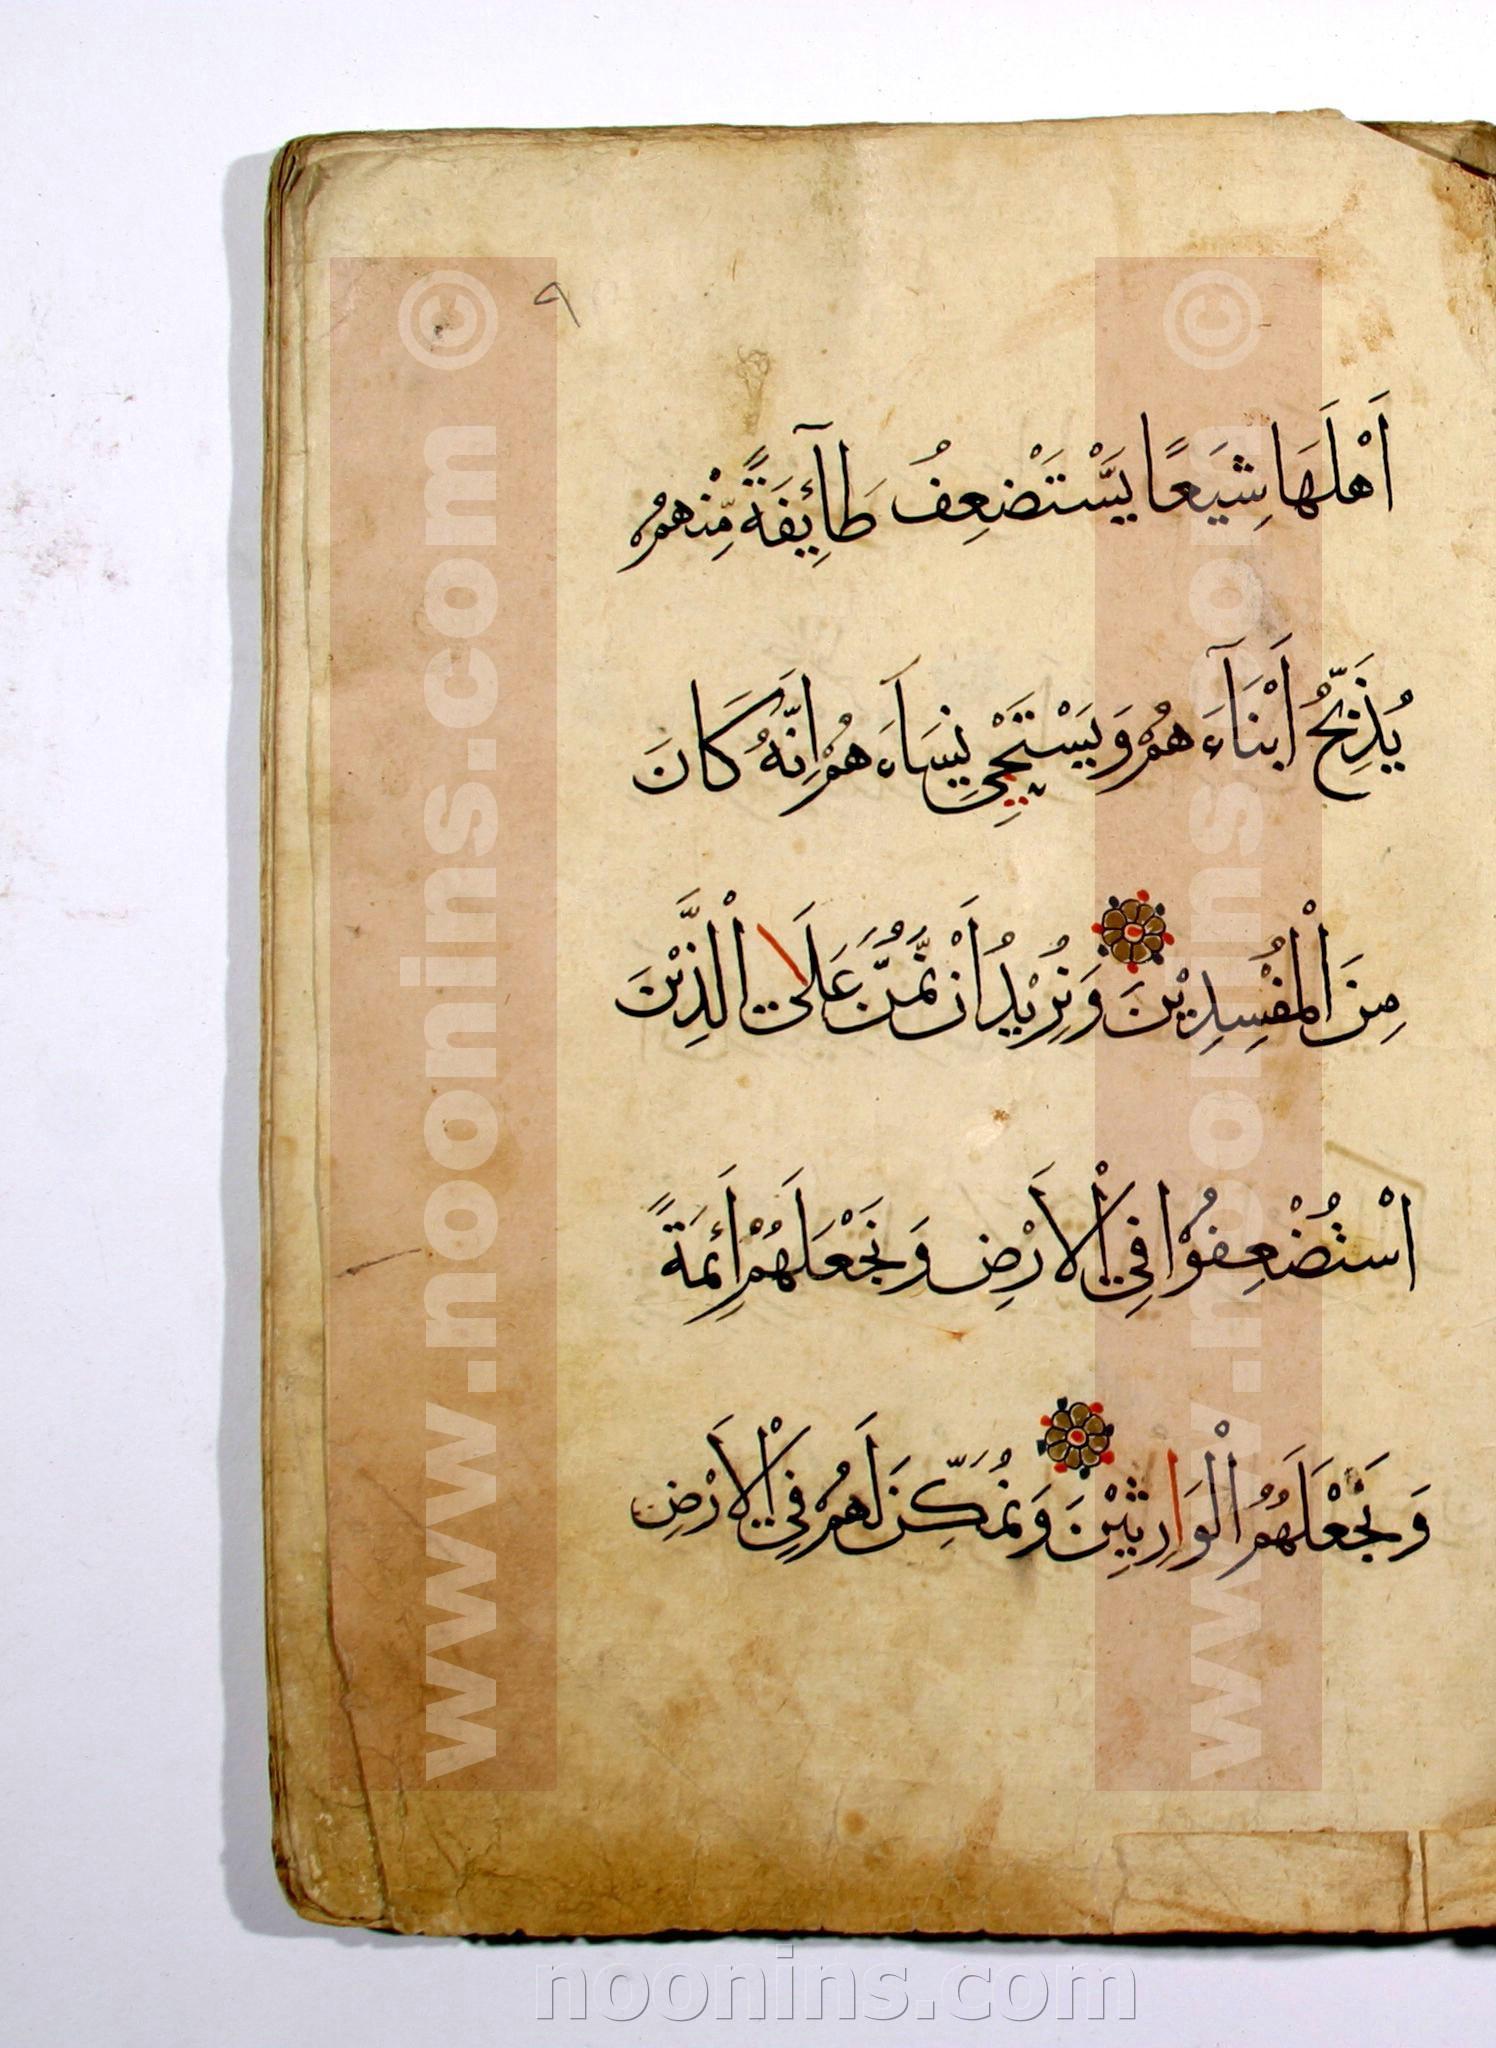 ٩
اَهْلَهَا شِيَعًا يَسْتَضْعِفُ طَآئِفَةً مِّنْهُمْ
يُذَبِّحُ اَبْنَآءَ هُمْ وَيَسْتَحْيٖ نِسَآءَ هُمْ اِنَّهُ كَانَ
مِنَ الْمُفْسِدِيْنَ وَنُرِيْدُ اَنْ نَّمُنَّ عَلَى الَّذِيْنَ
اسْتُضْعِفُوْا فِي الْاَرْضِ وَنَجْعَلَهُمْ اَئِمَّةً
وَنَجْعَلَهُمُ الْوَارِثِيْنَ وَنُمَكِّنَ لَهُمْ فِي الْاَرْضِ
www.noonins.com ©
www.noonins.com ©
noonins.com